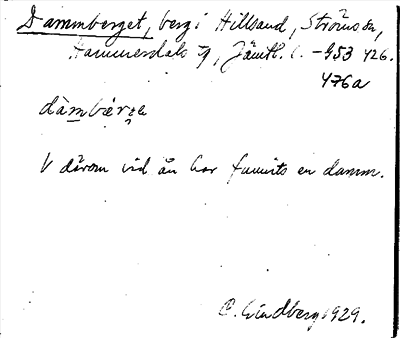 Dammberget, berg i Hillsand, Ströms sn,
Hammerdals tg, Jämtl. l. -953 426.
476a
dàmbærɡa
V därom vid ån har funnits en damm.
C. Lindberg 1929.